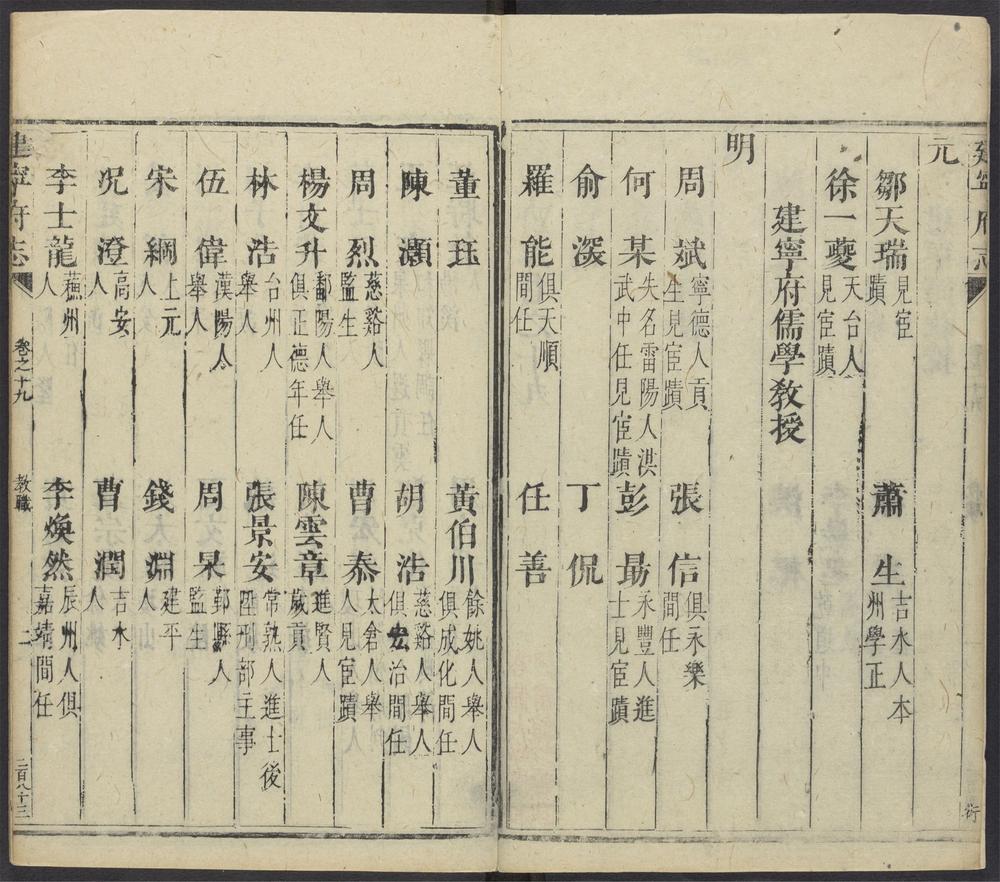 建寧府志
元
鄒天瑞 見宦蹟 蕭生 吉水人本州學正
徐一夔 天台人見宦蹟
建寧府儒學教授
明
周斌 寧德人貢生見宦蹟 張信 俱永樂間任
何某 失名雷陽人洪武中任見宦蹟 彭勗 永豐人進士見宦蹟
俞深 丁侃
羅能 俱天順間任 任善
董珏 黃伯川 餘姚人舉人俱成化間任
陳灝 胡浩 慈谿人舉人俱弘治間任
周烈 慈谿人監生 曹泰 太倉人舉人見宦蹟
楊文升 鄱陽人舉人俱正德年任 陳雲章 進賢人歲貢
林浩 台州人舉人 張景安 常熟人進士後陞刑部主事
伍偉 漢陽人舉人 周杲 鄞縣人監生
宋綱 上元人 錢太淵 建平人
況澄 高安人 曹潤 吉水人
李士龍 蘄州人 李煥然 辰州人俱嘉靖間任
建寧府志 卷之十九 教職 二 二百八十三